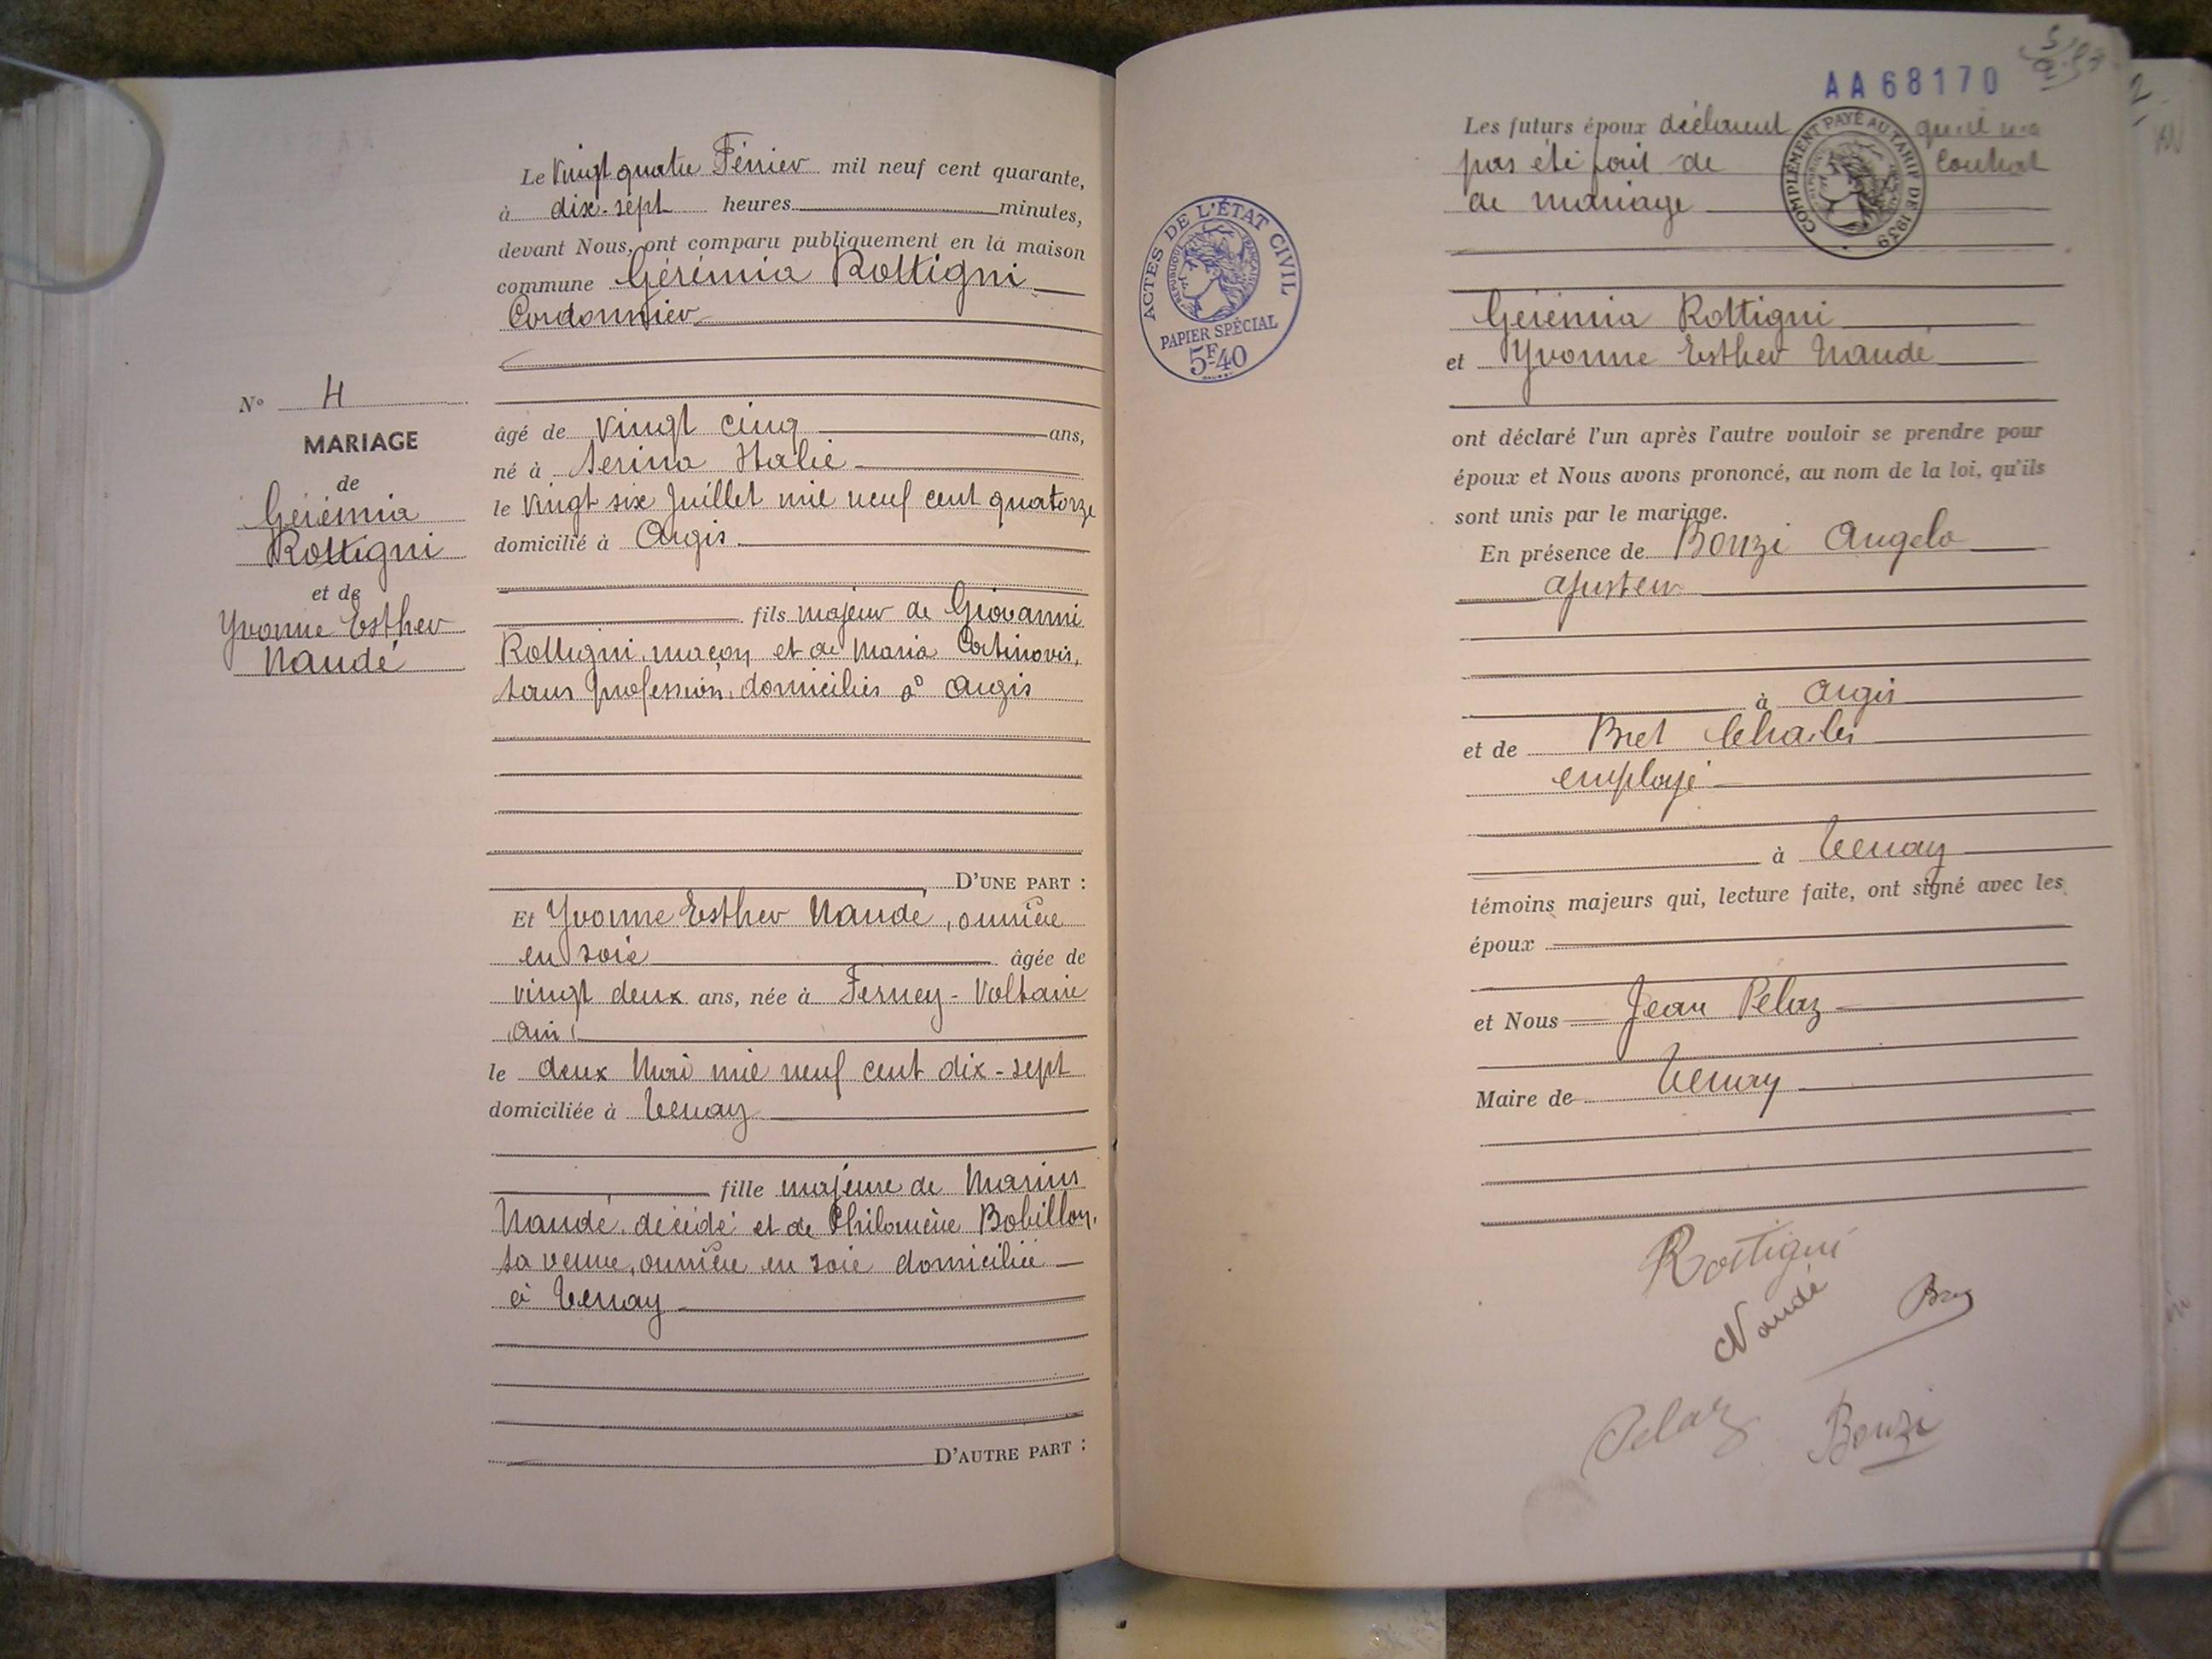 Le vingt quatre Février mil neuf cent quarante,
à dix-sept heures minutes,
devant Nous, ont comparu publiquement en la maison
commune Gérémia Rottigni
Cordonnier
N° 4
MARIAGE
de
Gérémia
Rottigni
et de
Yvonne Esther
Naudé
âgé de vingt cinq ans,
né à Serina Italie
le vingt six Juillet mil neuf cent quatorze
domicilié à Argis
fils majeur de Giovanni
Rottigni, maçon et de Maria Cortinovis,
sans profession, domiciliés à Argis
D'UNE PART :
Et Yvonne Esther Naudé, ouvrière
en soie âgée de
vingt deux ans, née à Ferney-Voltaire
(Ain)
le deux Mai mil neuf cent dix-sept
domiciliée à Tenay
fille majeure de Marius
Naudé, décédé et de Philomène Bobillon,
sa veuve, ouvrière en soie domiciliée
à Tenay
D'AUTRE PART :
AA68170
ACTES DE L'ÉTAT CIVIL
RÉPUBLIQUE FRANÇAISE
PAPIER SPÉCIAL
5F40
COMPLÉMENT PAYÉ AU TARIF DE 1939
Les futurs époux déclarent qu'il n'a
pas été fait de contrat
de mariage
Gérémia Rottigni
et Yvonne Esther Naudé
ont déclaré l'un après l'autre vouloir se prendre pour
époux et Nous avons prononcé, au nom de la loi, qu'ils
sont unis par le mariage.
En présence de Bonzi Angelo
ajusteur
à Argis
et de Bret Charles
employé
à Tenay
témoins majeurs qui, lecture faite, ont signé avec les
époux
et Nous Jean Pélaz
Maire de Tenay
Rottigni
Naudé
Pelaz
Bonzi